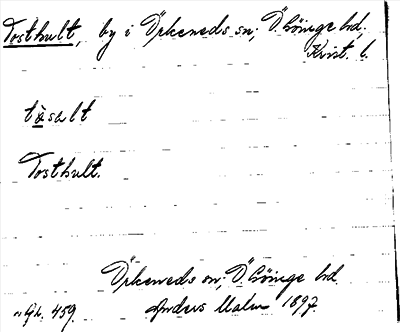 Tosthult, by i Örkeneds sn; Ö. Göinge hd,
Krist. l.
tåsalt
Tosthult.
Örkeneds sn; Ö. Göinge hd.
Gh. 459. Anders Malm 1897.